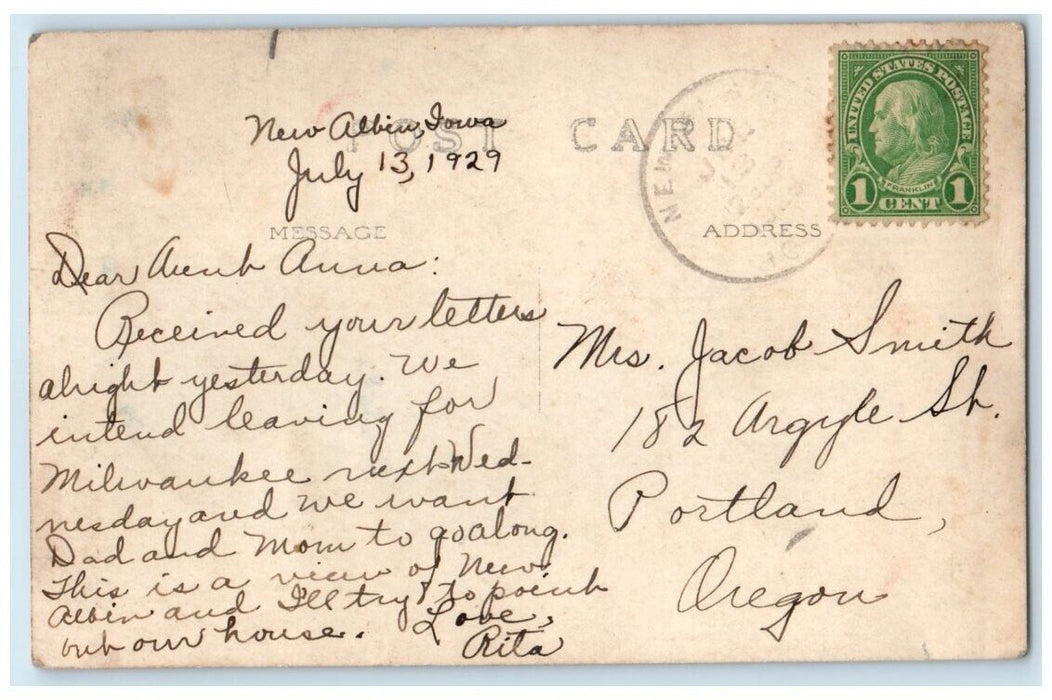 New Albin, Iowa
POST CARD
July 13, 1929
MESSAGE
ADDRESS
UNITED STATES POSTAGE
FRANKLIN
1 CENT 1
NEW
Dear Aunt Anna:
Received your letters
alright yesterday. We
intend leaving for
Milwaukee next Wed-
nesday and we want
Dad and Mom to go along.
This is a view of New
Albin and I'll try to point
out our house. Love,
Rita
Mrs. Jacob Smith
182 Argyle St.
Portland,
Oregon